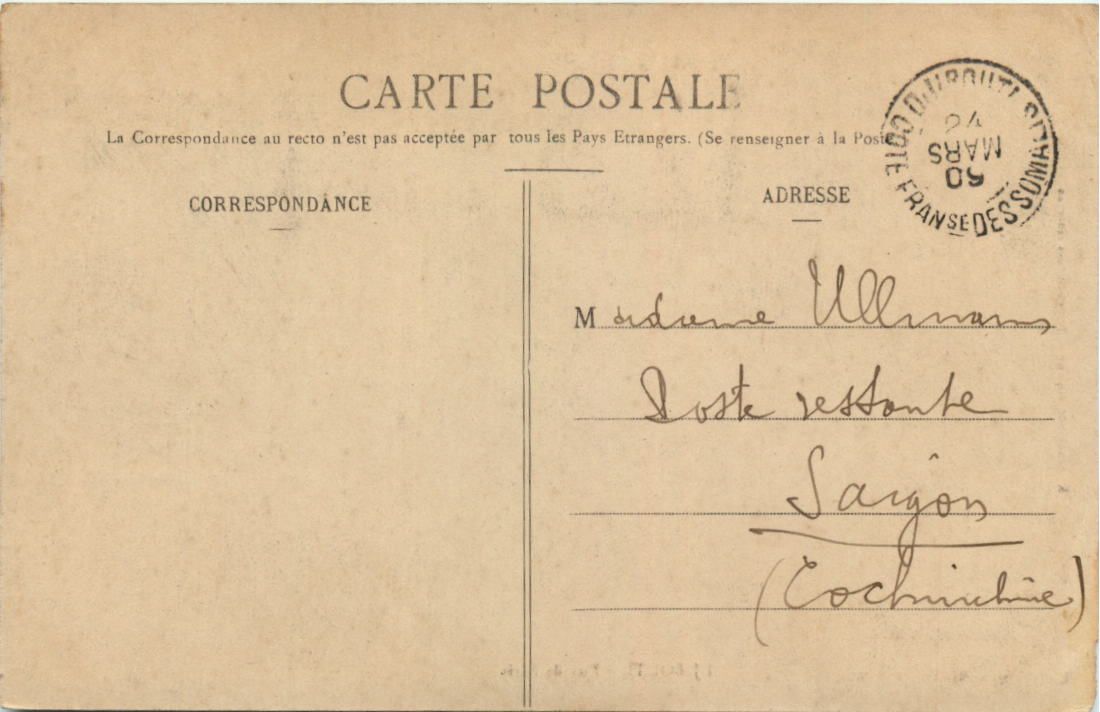 CARTE POSTALE
La Correspondance au recto n'est pas acceptée par tous les Pays Etrangers. (Se renseigner à la Poste
CORRESPONDANCE
ADRESSE
Madame Ullmann
Poste restante
Saïgon
(Cochinchine)
DJIBOUTI
COTE FRANSE DES SOMALIS
MARS
09